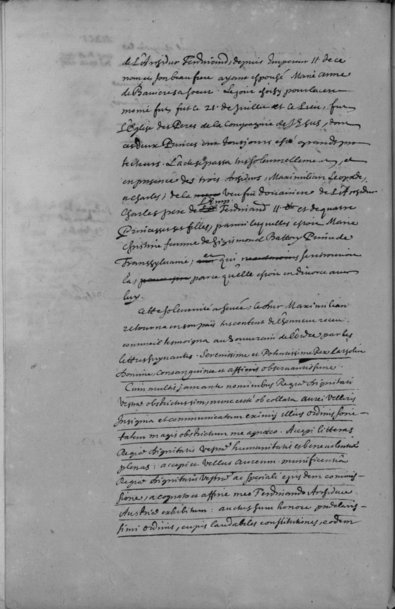 de L'Archiduc Ferdinand, depuis Empereur II de ce
nom et son beau frere ayant espousé Marie Anne
de Baviere sa soeur. Le jour choisi pour la cere-
monie fut le 21e de Juillet et le Lieu, fut
L'Eglise des Peres de la Compagnie de Jesus, dont
ces deux Princes ont tousjours esté grands pro-
tecteurs. La chose se passa tres solemnellement, et
en presence des trois Archiducs, Maximilian, Leopold,
et Charles; de la veufve douairiere de L'Archiduc
Charles pere de Ferdinand II et de quatre
Princesses ses filles, parmi lesquelles estoit Marie
Christine femme de Sigismond Battory Prince de
Transsylvanie, qui se trouvoit
là, parce qu'elle estoit en divorce avec
luy.
Cette solemnité achevée, le Duc Maximilian
retourna en son païs tres content de l'honneur receu.
comme il tesmoigna au Souverain de l'ordre, par les
lettres suyvantes. Serenissime et Potentissime Rex
Domine Consanguinee et affinis observantissime.
Cum multis jam ante nominibus Regiae Dignitati
Vestrae obstrictissimus, nunc certè ob collata aurei Velleris
Insignia et communicatum eximij illius ordinis socie-
tatem magis obstrictum me agnosco. Accepi litteras
Regiae Dignitatis Vestrae humanitatis et benevolentiae
plenas: accepi et Vellus Aureum munificentiâ
Regiae Dignitatis Vestrae ac speciali ejusdem commis-
sione, a cognato et affine meo Ferdinando Archiduce
Austriae exhibitum: auctus sum honore praeclaris-
simi ordinis, cujus laudabiles constitutiones, eodem